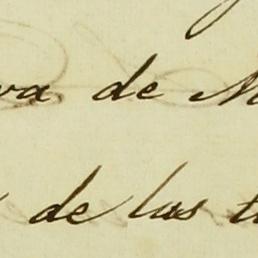 va de M
de las t